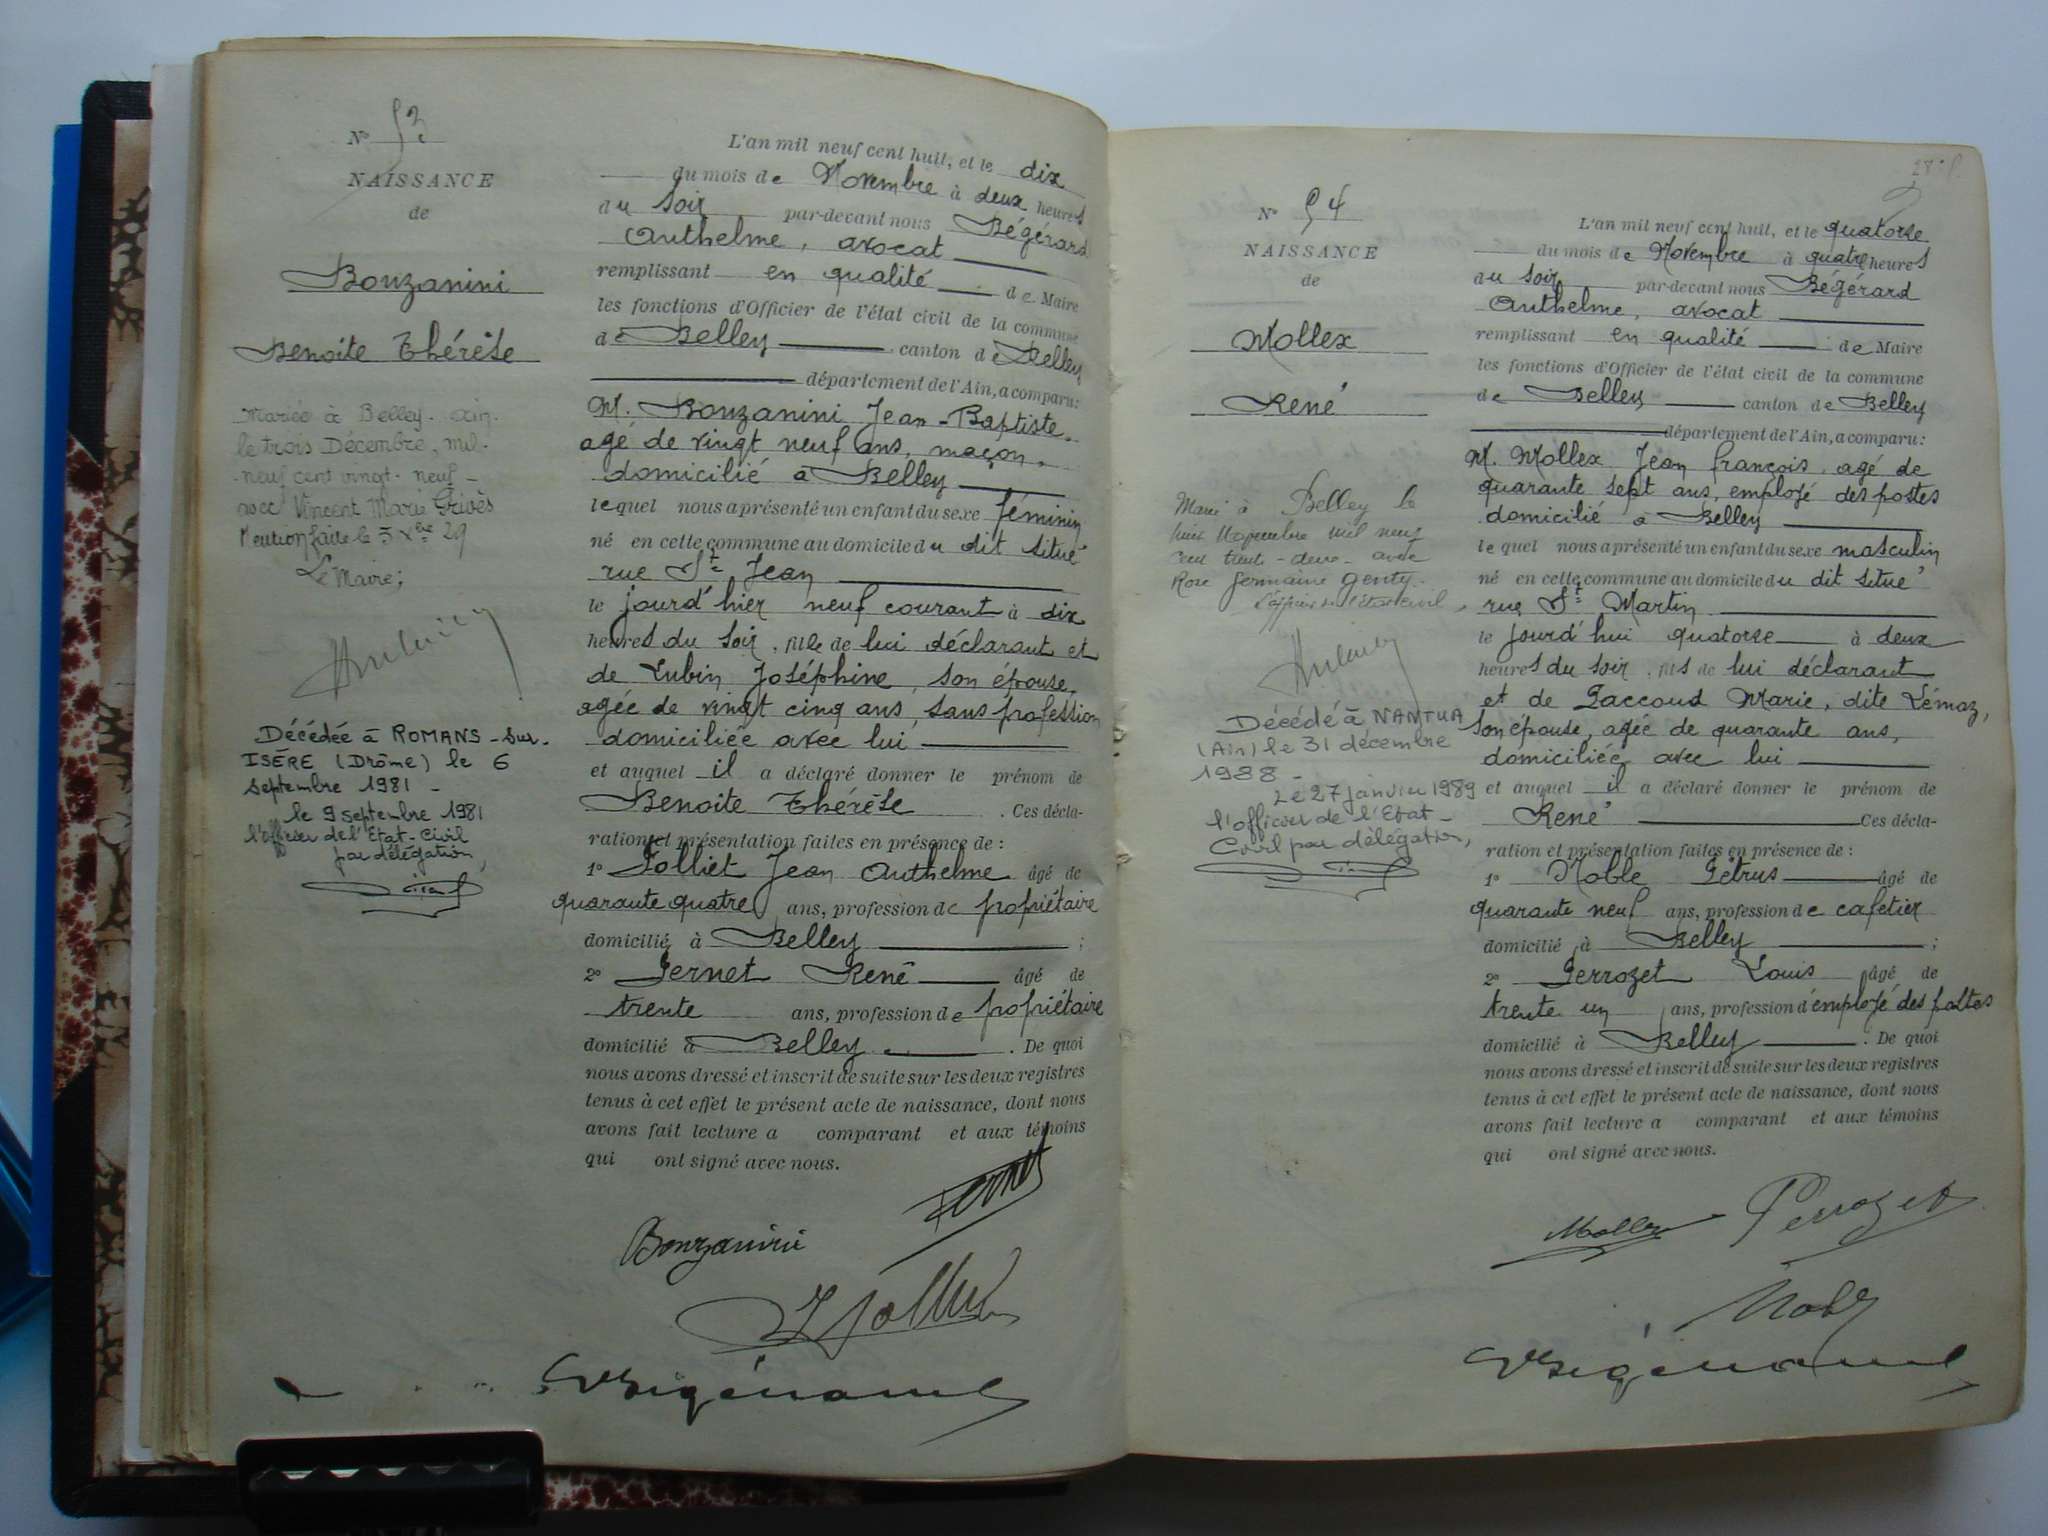 N° 53
NAISSANCE
de
Bonzanini
Benoite Thérèse
Mariée à Belley. Ain.
le trois Décembre, mil.
neuf cent vingt-neuf -
avec Vincent Marie Grivès
Mention faite le 3 Xbre 29
Le Maire;
Décédée à ROMANS-sur-
ISÈRE (Drôme) le 6
septembre 1981 -
le 9 septembre 1981
l'officier de l'Etat-Civil
par délégation,
L'an mil neuf cent huit, et le dix
du mois de Novembre à deux heures
du soir par-devant nous Bégérard
Anthelme, avocat
remplissant en qualité de Maire
les fonctions d'Officier de l'état civil de la commune
de Belley canton de Belley
département de l'Ain, a comparu:
M. Bonzanini Jean-Baptiste.
agé de vingt neuf ans, maçon,
domicilié à Belley
lequel nous a présenté un enfant du sexe féminin
né en cette commune au domicile du dit situé
rue St Jean
le jourd'hier neuf courant à dix
heures du soir, fille de lui déclarant et
de Lubin Joséphine, son épouse,
agée de vingt cinq ans, sans profession
domiciliée avec lui
et auquel il a déclaré donner le prénom de
Benoite Thérèse . Ces décla-
ration et présentation faites en présence de :
1° Jolliet Jean Anthelme âgé de
quarante quatre ans, profession de propriétaire
domicilié à Belley ;
2° Pernet René âgé de
trente ans, profession de propriétaire
domicilié à Belley . De quoi
nous avons dressé et inscrit de suite sur les deux registres
tenus à cet effet le présent acte de naissance, dont nous
avons fait lecture a comparant et aux témoins
qui ont signé avec nous.
Pernet
Bonzanini
Jolliet
N° 54
NAISSANCE
de
Mollex
René
Marié à Belley le
huit Novembre mil neuf
cent trente-deux avec
Rose Germaine Genty.
L'officier de l'Etat civil,
Décédé à NANTUA
(Ain) le 31 décembre
1988 -
Le 27 janvier 1989
l'officier de l'Etat-
Civil par délégation,
L'an mil neuf cent huit, et le quatorse
du mois de Novembre à quatre heures
du soir par-devant nous Bégérard
Anthelme, avocat
remplissant en qualité de Maire
les fonctions d'Officier de l'état civil de la commune
de Belley canton de Belley
département de l'Ain, a comparu:
M. Mollex Jean françois, agé de
quarante sept ans, employé des postes
domicilié à Belley
lequel nous a présenté un enfant du sexe masculin
né en cette commune au domicile du dit situé
rue St Martin
le jourd'hui quatorse à deux
heures du soir, fils de lui déclarant
et de Paccoud Marie, dite Lémaz,
son épouse, agée de quarante ans,
domiciliée avec lui
et auquel il a déclaré donner le prénom de
René Ces décla-
ration et présentation faites en présence de :
1° Noble Pétrus âgé de
quarante neuf ans, profession de cafetier
domicilié à Belley ;
2° Perrozet Louis âgé de
trente un ans, profession d'employé des postes
domicilié à Belley . De quoi
nous avons dressé et inscrit de suite sur les deux registres
tenus à cet effet le présent acte de naissance, dont nous
avons fait lecture a comparant et aux témoins
qui ont signé avec nous.
Mollex Perrozet